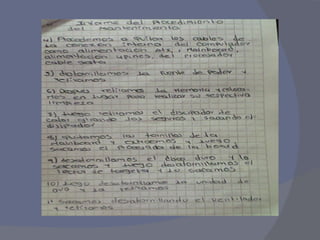 Informe del Procedimiento
del Mantenimiento
4) Procedemos a quitar los cables de
la conexion interna del computador
como alimentacion ATX, Mainboard,
alimentacion 4 pines, del procesador
cable sata
5) destornillamos la fuente de poder y
retiramos
6) Despues retiramos la memoria y
en lugar para realizar su respectiva
limpieza
7) luego retiramos el disipador de
calor girando los seguros y sacando el
disipador
8) quitamos los tornillos de la
Mainboard y extraemos y luego
sacamos el Procesador de la board
9) destornillamos el disco duro y lo
sacamos y luego destornillamos el
lector de targeta y lo sacamos
10) luego destornillamos la unidad de
DVD y la retiramos
destornillando el ventilador
y retiramos